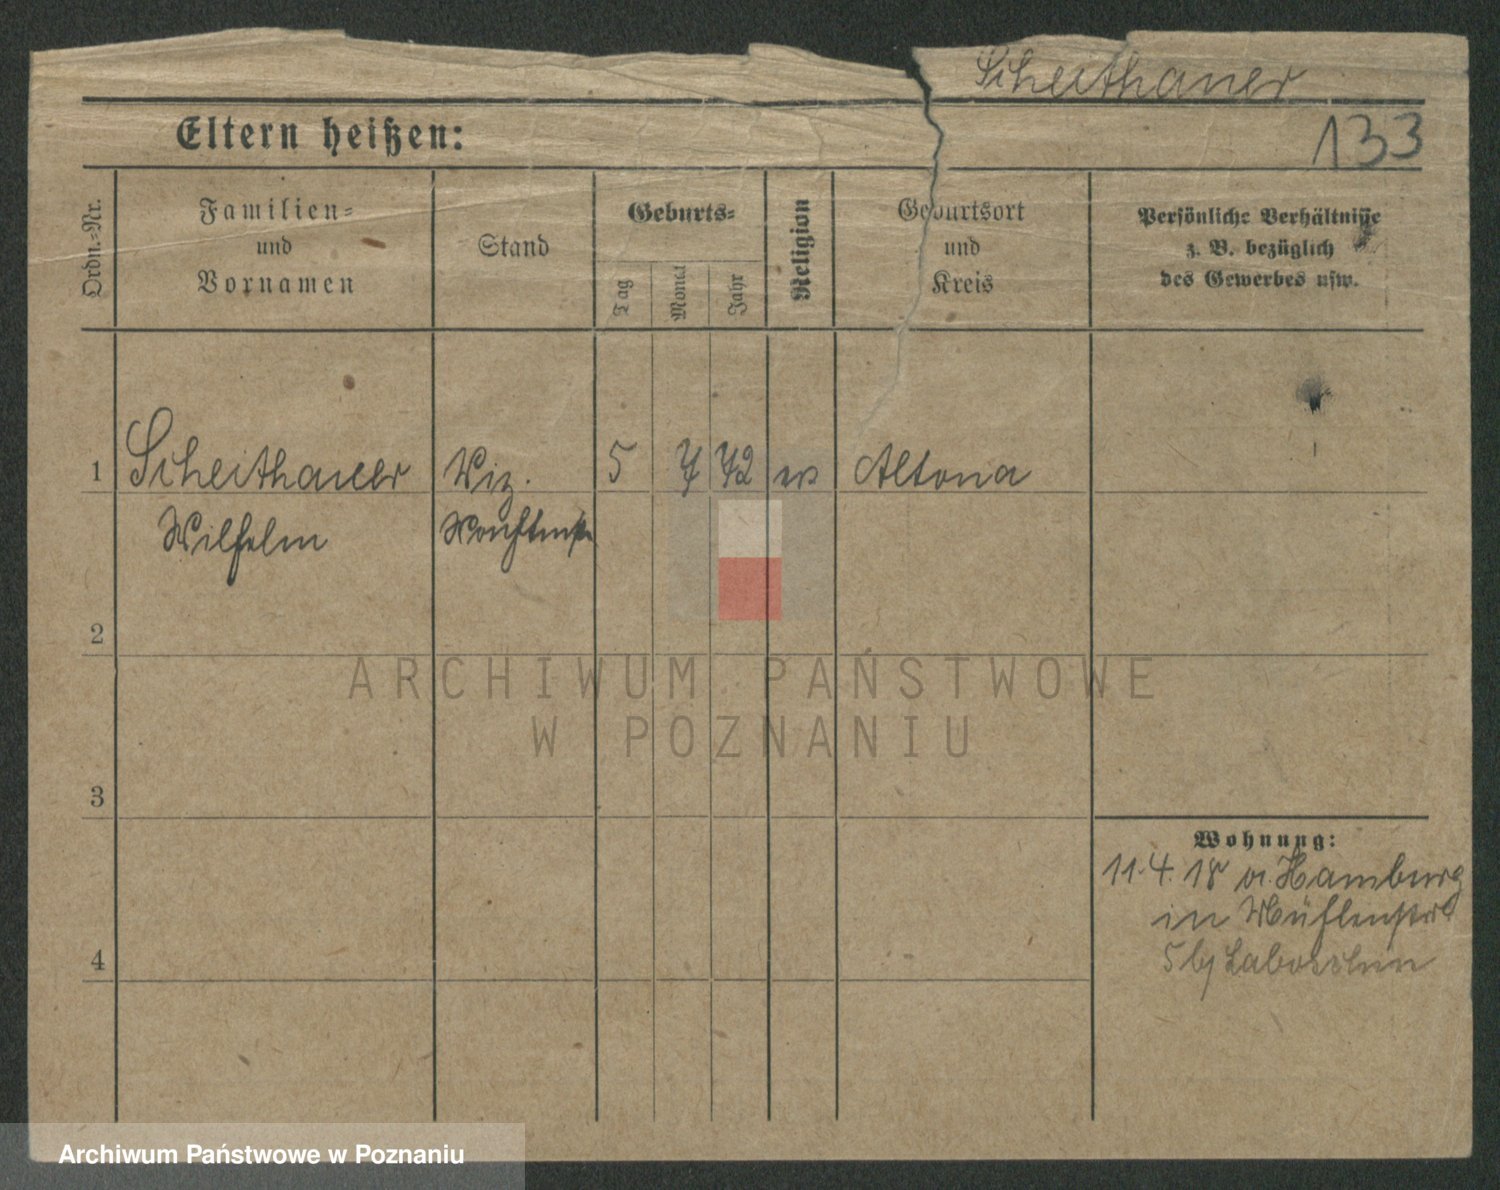 Scheithauer
Eltern heißen:
133
Ordn.-Nr.
Familien-
und
Vornamen
Stand
Geburts-
Tag
Monat
Jahr
Religion
Geburtsort
und
Kreis
Persönliche Verhältnisse
z. B. bezüglich
des Gewerbes usw.
1 Scheithauer Viz. 5 7 72 ev Altona
Wilhelm Wachtmstr
2
ARCHIWUM PAŃSTWOWE
W POZNANIU
3
Wohnung:
11.4.18 v. Hamburg
in Mühlenstr
5 bj
4
Archiwum Państwowe w Poznaniu